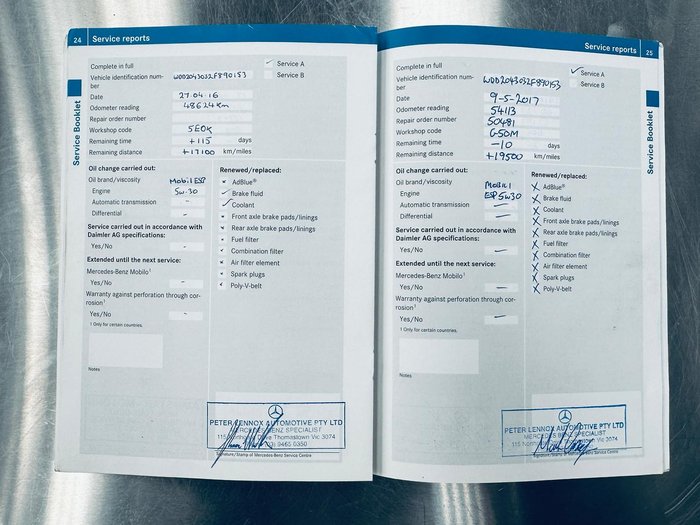 24 Service reports
Service Booklet
Complete in full
Service A
Service B
Vehicle identification num-
ber
WDD2043032F890153
Date
27.04.16
Odometer reading
48624km
Repair order number
Workshop code
5E0K
Remaining time
+115 days
Remaining distance
+17100 km/miles
Oil change carried out:
Oil brand/viscosity
Mobil ESP
Engine
5w.30
Automatic transmission -
Differential -
Service carried out in accordance with
Daimler AG specifications:
Yes/No -
Extended until the next service:
Mercedes-Benz Mobilo¹
Yes/No -
Warranty against perforation through cor-
rosion¹
Yes/No -
1 Only for certain countries.
Notes
Renewed/replaced:
AdBlue®
Brake fluid
Coolant
Front axle brake pads/linings
Rear axle brake pads/linings
Fuel filter
Combination filter
Air filter element
Spark plugs
Poly-V-belt
PETER LENNOX AUTOMOTIVE PTY LTD
MERCEDES BENZ SPECIALIST
Thomastown Vic 3074
(03) 9465 0350
Signature/Stamp of Mercedes-Benz Service Centre
Service reports 25
Service Booklet
Complete in full
Service A
Service B
Vehicle identification num-
ber
WDD2043032F890153
Date
9-5-2017
Odometer reading
54113
Repair order number
50481
Workshop code
G50M
Remaining time
-10 days
Remaining distance
+19500 km/miles
Oil change carried out:
Oil brand/viscosity
Mobil 1
Engine
ESP 5w30
Automatic transmission —
Differential —
Service carried out in accordance with
Daimler AG specifications:
Yes/No —
Extended until the next service:
Mercedes-Benz Mobilo¹
Yes/No —
Warranty against perforation through cor-
rosion¹
Yes/No —
1 Only for certain countries.
Notes
Renewed/replaced:
X AdBlue®
X Brake fluid
X Coolant
X Front axle brake pads/linings
X Rear axle brake pads/linings
X Fuel filter
X Combination filter
X Air filter element
X Spark plugs
X Poly-V-belt
PETER LENNOX AUTOMOTIVE PTY LTD
MERCEDES BENZ SPECIALIST
Thomastown Vic 3074
Signature/Stamp of Mercedes-Benz Service Centre